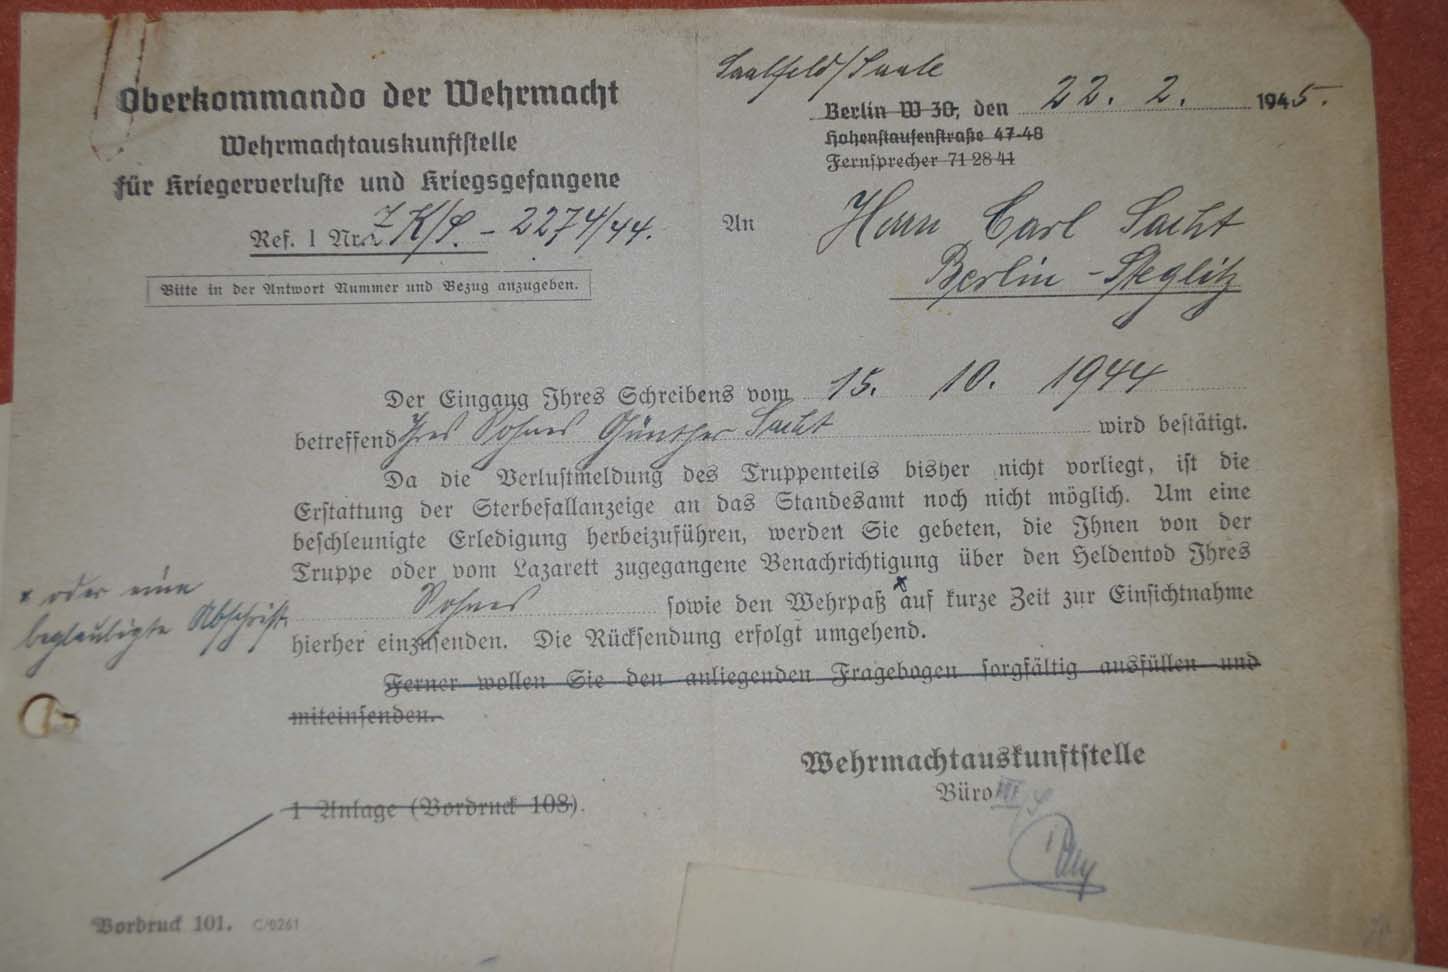 Oberkommando der Wehrmacht
Wehrmachtauskunftstelle
für Kriegerverluste und Kriegsgefangene
Ref. I Nr. K/S. - 2274/44.
Bitte in der Antwort Nummer und Bezug anzugeben.
Saalfeld/Saale
Berlin W 30, den 22. 2. 1945.
Hohenstaufenstraße 47-48
Fernsprecher 71 28 41
An Herrn Carl Sacht
Berlin - Steglitz
Der Eingang Ihres Schreibens vom 15. 10. 1944
betreffend Ihres Sohnes Günther Sacht wird bestätigt.
Da die Verlustmeldung des Truppenteils bisher nicht vorliegt, ist die
Erstattung der Sterbefallanzeige an das Standesamt noch nicht möglich. Um eine
beschleunigte Erledigung herbeizuführen, werden Sie gebeten, die Ihnen von der
Truppe oder vom Lazarett zugegangene Benachrichtigung über den Heldentod Ihres
Sohnes sowie den Wehrpaß x auf kurze Zeit zur Einsichtnahme
x oder eine
beglaubigte Abschrift
hierher einzusenden. Die Rücksendung erfolgt umgehend.
Ferner wollen Sie den anliegenden Fragebogen sorgfältig ausfüllen und
miteinsenden.
Wehrmachtauskunftstelle
Büro III
1 Anlage (Vordruck 108).
Vordruck 101. C/0261